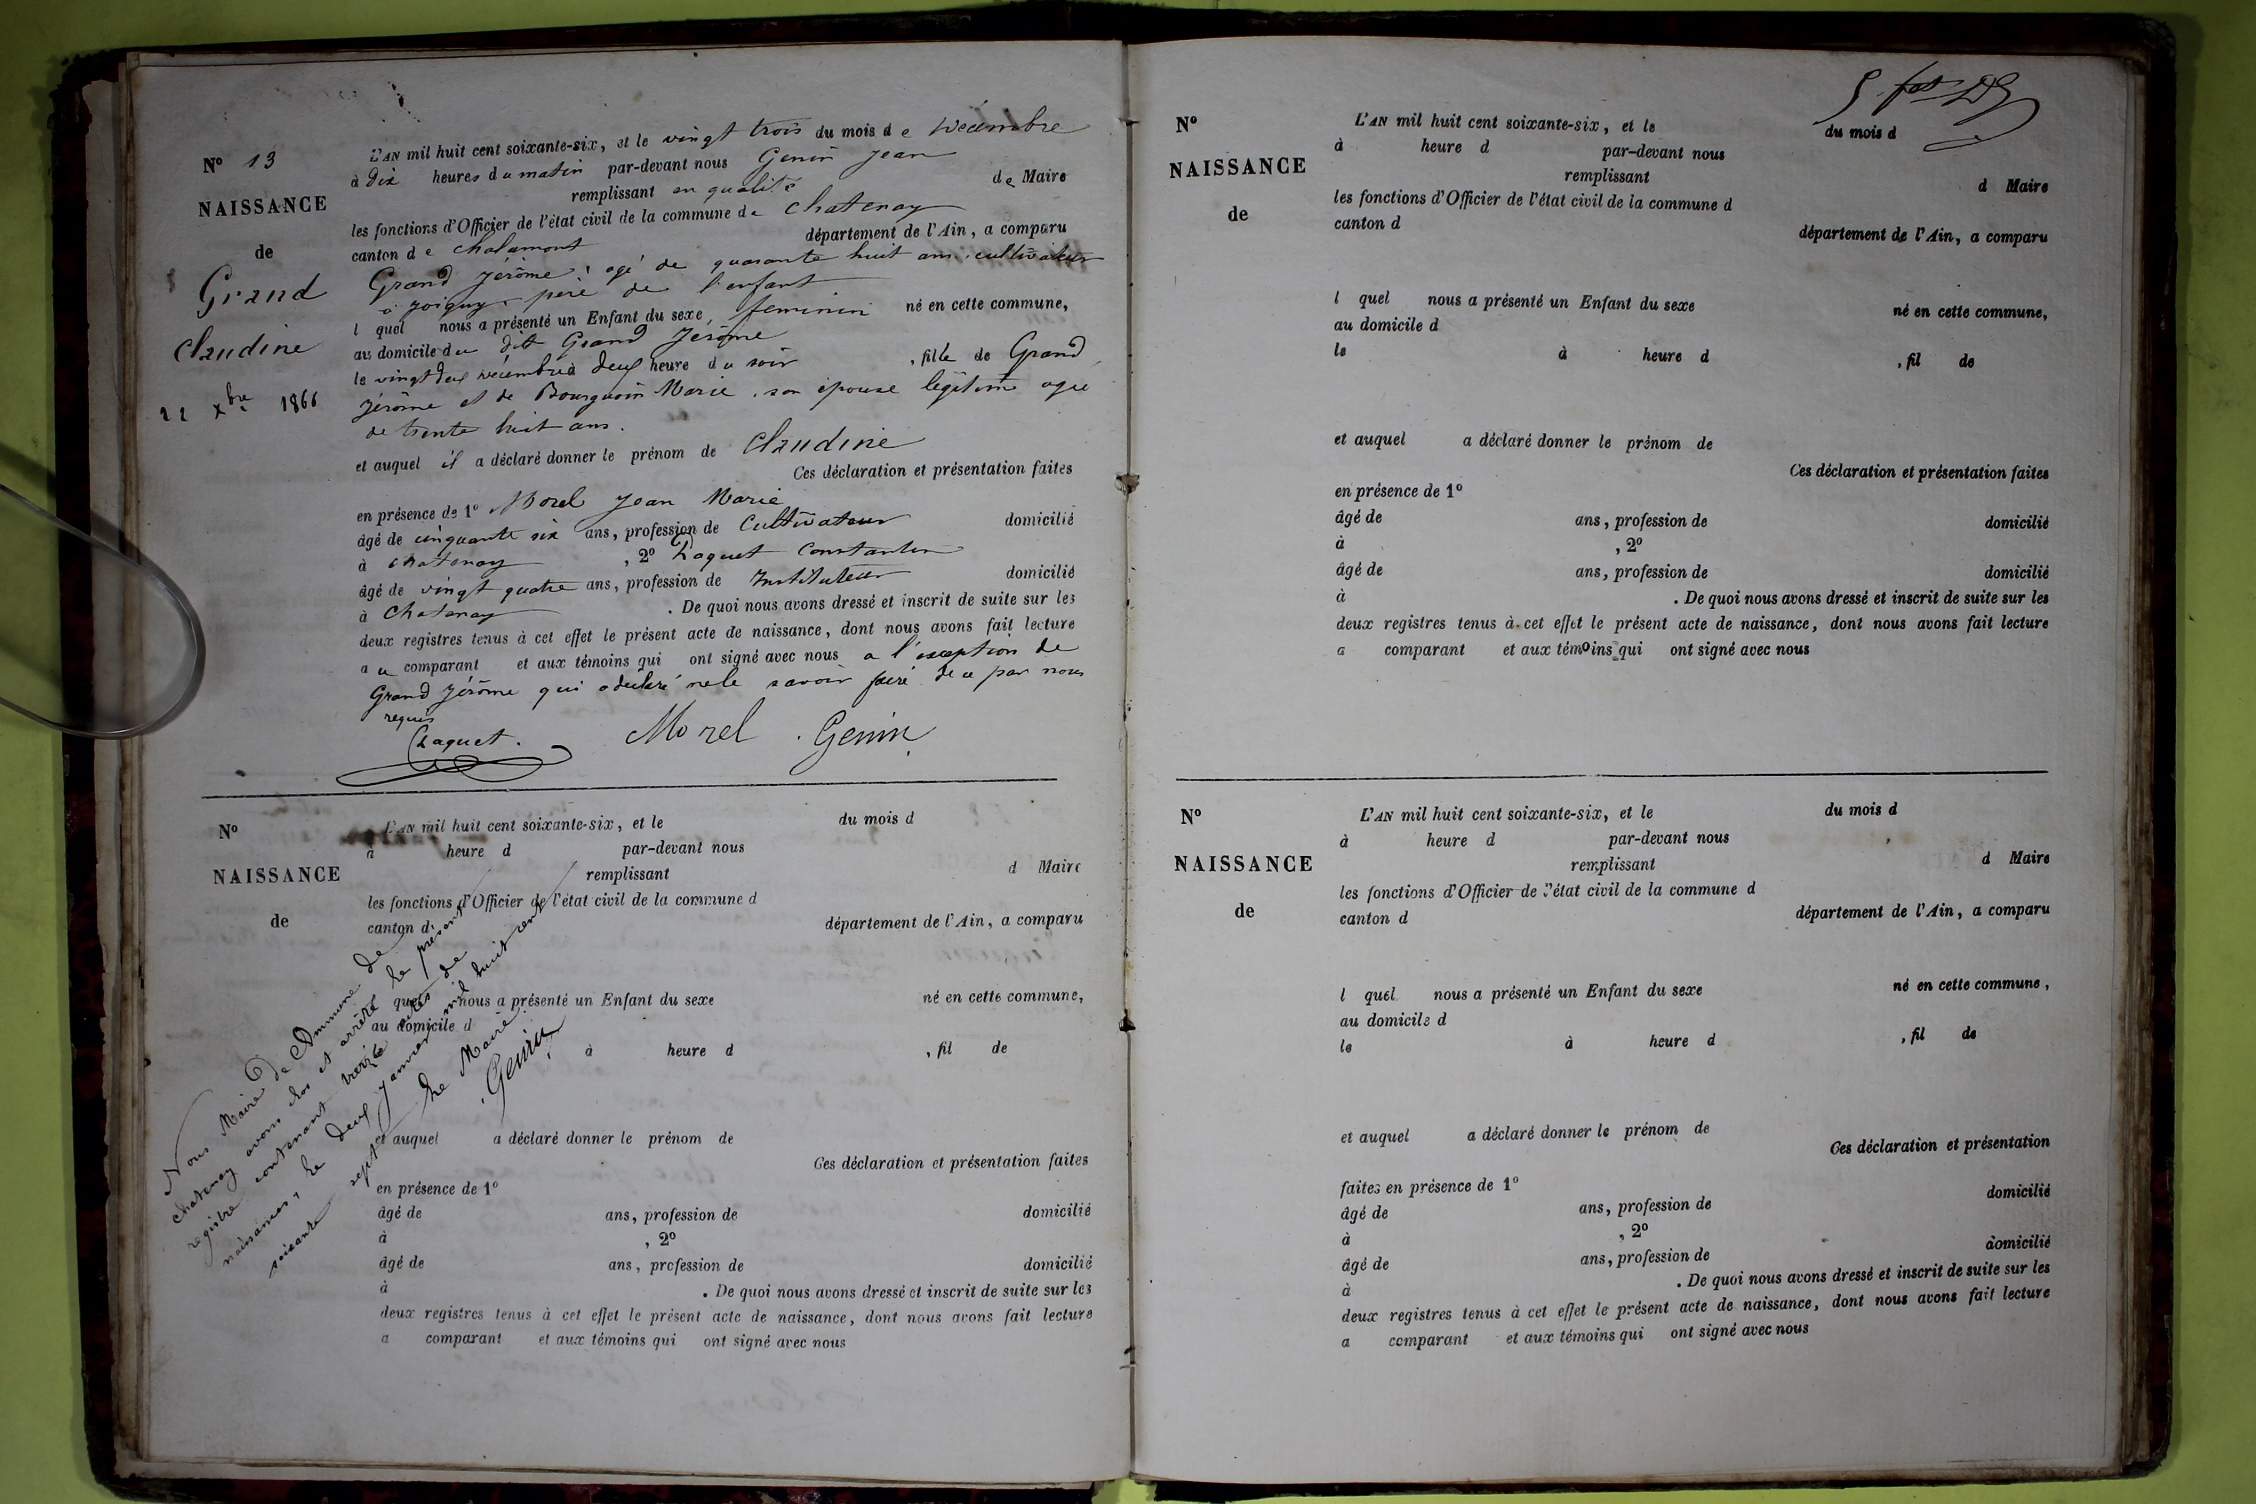 N° 13
NAISSANCE
de
Grand
Claudine
22 Xbre 1866
L'AN mil huit cent soixante-six, et le vingt trois du mois de Décembre
à dix heures du matin par-devant nous Genin Jean
remplissant en qualité de Maire
les fonctions d'Officier de l'état civil de la commune de Chatenay
canton de Chalamont département de l'Ain, a comparu
Grand Jérôme, agé de quarante huit ans, cultivateur
à Joigny, père de l'enfant
l quel nous a présenté un Enfant du sexe feminin né en cette commune,
au domicile du dit Grand Jérôme
le vingt deux Décembre à deux heure du soir, fille de Grand
Jérôme et de Bourguoin Marie, son épouse légitime agée
de trente huit ans.
et auquel il a déclaré donner le prénom de Claudine
Ces déclaration et présentation faites
en présence de 1° Morel Jean Marie
âgé de cinquante six ans, profession de Cultivateur domicilié
à Chatenay, 2° Claquet Constantin
âgé de vingt quatre ans, profession de Instituteur domicilié
à Chatenay. De quoi nous avons dressé et inscrit de suite sur les
deux registres tenus à cet effet le présent acte de naissance, dont nous avons fait lecture
au comparant et aux témoins qui ont signé avec nous a l'exception de
Grand Jérôme qui a déclaré ne le savoir faire de ce par nous
requis
Morel Genin
N°
NAISSANCE
de
L'AN mil huit cent soixante-six, et le du mois d
à heure d par-devant nous
remplissant d Maire
les fonctions d'Officier de l'état civil de la commune d
canton d département de l'Ain, a comparu
quel nous a présenté un Enfant du sexe né en cette commune,
au domicile d
à heure d , fil de
et auquel a déclaré donner le prénom de
Ces déclaration et présentation faites
en présence de 1°
âgé de ans, profession de domicilié
à , 2°
âgé de ans, profession de domicilié
à . De quoi nous avons dressé et inscrit de suite sur les
deux registres tenus à cet effet le présent acte de naissance, dont nous avons fait lecture
a comparant et aux témoins qui ont signé avec nous
Nous Maire de Commune de
Chatenay avons clos et arrêté le présent
registre contenant treize actes de
naissances, le deux Janvier mil huit cent
soixante sept
Le Maire
Genin
N°
NAISSANCE
de
L'AN mil huit cent soixante-six, et le du mois d
à heure d par-devant nous
remplissant d Maire
les fonctions d'Officier de l'état civil de la commune d
canton d département de l'Ain, a comparu
l quel nous a présenté un Enfant du sexe né en cette commune,
au domicile d
le à heure d , fil de
et auquel a déclaré donner le prénom de
Ces déclaration et présentation faites
en présence de 1°
âgé de ans, profession de domicilié
à , 2°
âgé de ans, profession de domicilié
à . De quoi nous avons dressé et inscrit de suite sur les
deux registres tenus à cet effet le présent acte de naissance, dont nous avons fait lecture
a comparant et aux témoins qui ont signé avec nous
N°
NAISSANCE
de
L'AN mil huit cent soixante-six, et le du mois d
à heure d par-devant nous
remplissant d Maire
les fonctions d'Officier de l'état civil de la commune d
canton d département de l'Ain, a comparu
l quel nous a présenté un Enfant du sexe né en cette commune,
au domicile d
le à heure d , fil de
et auquel a déclaré donner le prénom de
Ces déclaration et présentation
faites en présence de 1°
âgé de ans, profession de domicilié
à , 2°
âgé de ans, profession de domicilié
à . De quoi nous avons dressé et inscrit de suite sur les
deux registres tenus à cet effet le présent acte de naissance, dont nous avons fait lecture
a comparant et aux témoins qui ont signé avec nous